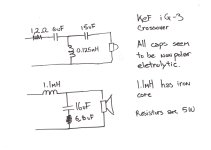 KEF iQ-3
Crossover
1.2Ω 6uF 15uF
0.125mH
All caps seem
to be nonpolar
eletrolytic.
1.1mH
16uF
6.8Ω
1.1mH has iron
core
Resistors are 5W